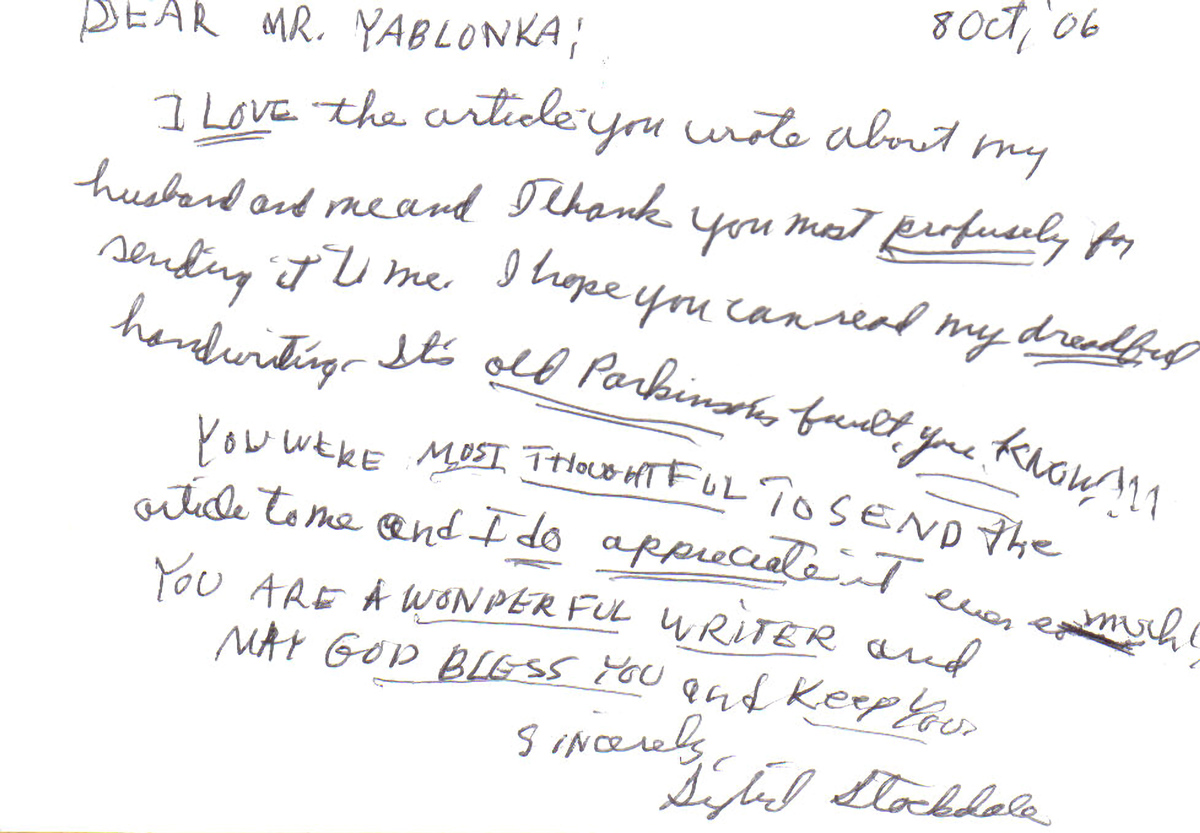 DEAR MR. YABLONKA; 8 Oct, '06
I LOVE the article you wrote about my
husband and me and I thank you most profusely for
sending it to me. I hope you can read my dreadful
handwriting. It's old Parkinson's fault, you KNOW!!!
YOU WERE MOST THOUGHTFUL TO SEND the
article to me and I do appreciate it ever so much!
YOU ARE A WONDERFUL WRITER and
MAY GOD BLESS YOU and Keep You.
Sincerely,
Stockdale